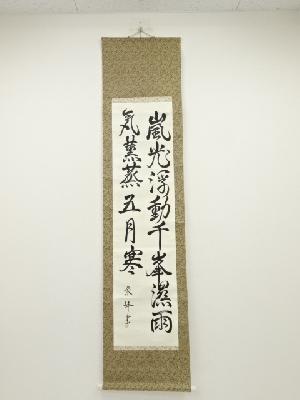 嵐光浮動千峯濕雨
気薫蒸五月寒